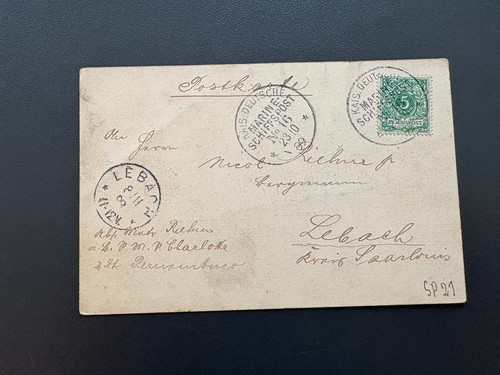 Postkarte
KAIS. DEUTSCHE
MARINE
SCHIFFSPOST
No 15
23/10
99
KAIS. DEUT
MARINE
SCHIFFSPOST
5
An Herrn
Nicol. Riehm
bergmann
Lebach
Kreis Saarlouis
LEBACH
8/11
11-12V.
Riehm
Charlotte
Pernambuco
SP 21